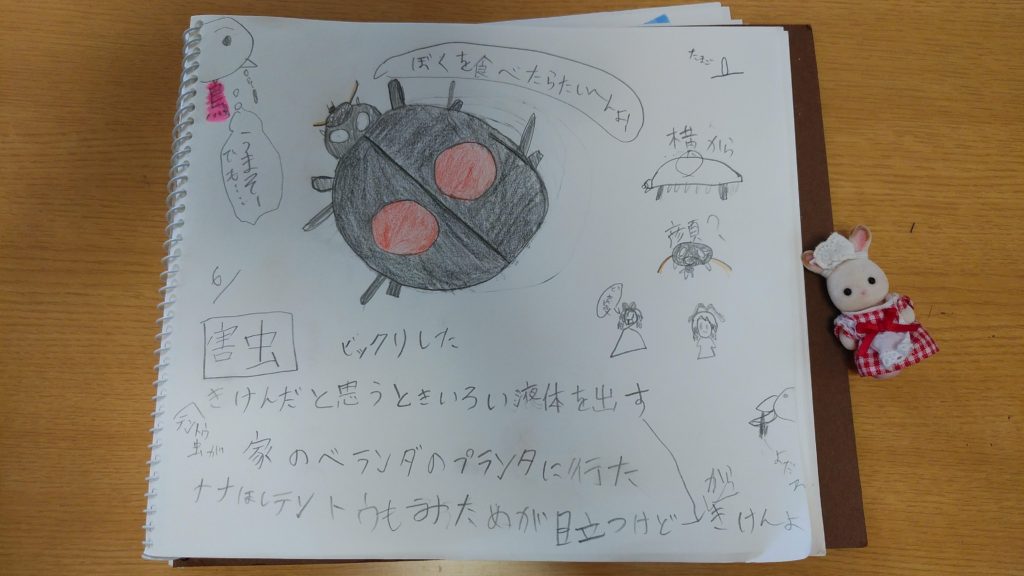 ぼくを食べたらたい～んよ!
たまご
鳥
うまそー
でも…
横から
顔?
6/
害虫
ビックリした
きけんだと思うときいろい液体を出す
テントウ
虫が
家のベランダのプランタに行た
ナナほしテントウも
めが目立つけど
から
きけんよ